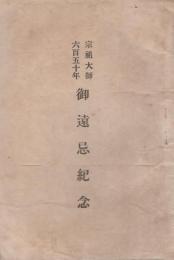 宗祖大師
六百五十年
御遠忌紀念